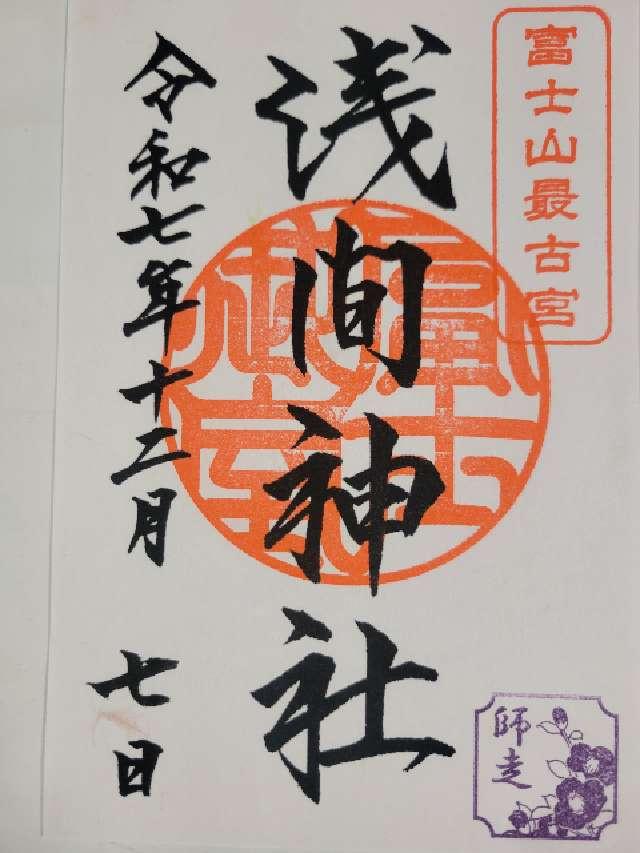 富士山最古宮
浅間神社
令和七年十二月 七日
師走